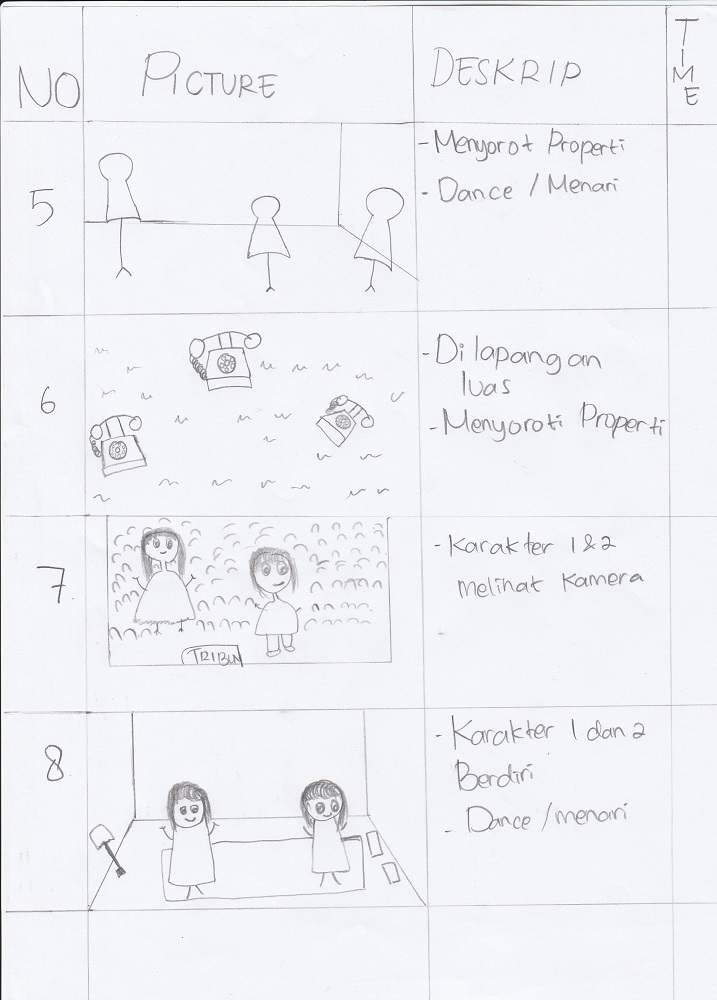 NO
PICTURE
DESKRIP
TIME
5
- Menyorot Properti
- Dance / Menari
6
- Di lapangan
luas
- Menyoroti Properti
7
TRIBUN
- Karakter 1 & 2
melihat kamera
8
- Karakter 1 dan 2
Berdiri
- Dance / menari